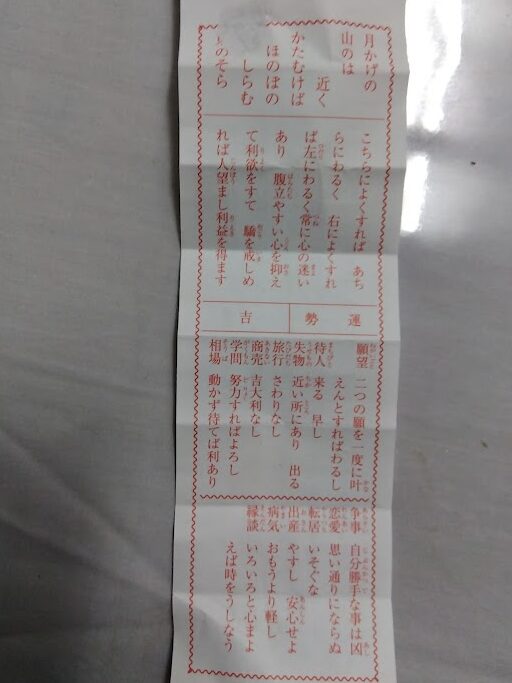 月かげの
山のは
近く
かたむけば
ほのぼの
しらむ
のそら
こちらによくすれば あち
らにわるく 右によくすれ
ば左にわるく常に心の迷い
あり 腹立やすい心を抑え
て利欲をすて 驕を戒しめ
れば人望まし利益を得ます
運勢 吉
願望 二つの願を一度に叶
えんとすればわるし
待人 来る 早し
失物 近い所にあり 出る
旅行 さわりなし
商売 吉大利なし
学問 努力すればよろし
相場 動かず待てば利あり
争事 自分勝手な事は凶
恋愛 思い通りにならぬ
転居 いそぐな
出産 やすし 安心せよ
病気 おもうより軽し
縁談 いろいろと心まよ
えば時をうしなう